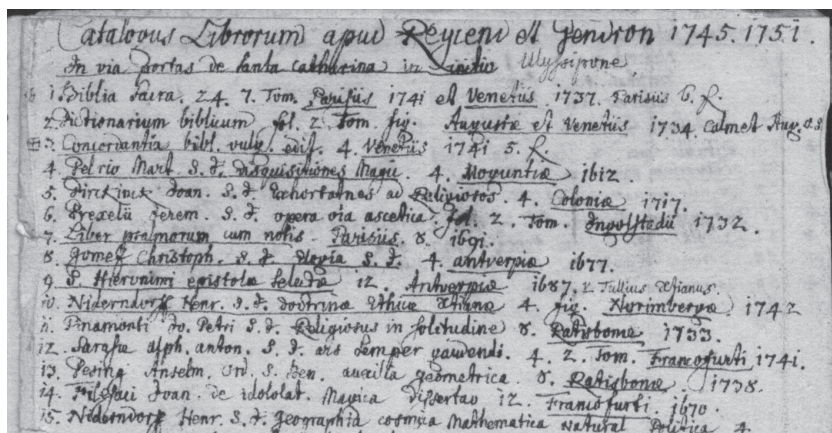 Catalogus Librorum apud Reycend et Gendron 1745. 1751.
In via portas de santa Catharina in initio Ulyssipone
1. Biblia Sacra. 24. 7. Tom. Parisiis 1741 et Venetiis 1737. Parisiis 6. f.
2. Dictionarium biblicum fol. 2. Tom. fig. Augustæ et Venetiis 1734. Calmet Aug.
3. Concordantia bibl. vulg. edit. 4. Venetiis 1741 5. f.
4. Pel rio Mart. S. J. disquisitiones Magic. 4. Moguntiæ 1612.
5. Dirckinck Joan. S. J. Exhortatnes ad Religiosos. 4. Coloniæ 1717.
6. Drexelii Jerem. S. J. opera oia ascetica. fol. 2. Tom. Ingolstadii 1732.
7. Liber psalmorum cum notis. Parisiis. 8. 1691.
8. Gomez Christoph. S. J. Elogia S. J. 4. antverpiæ 1677.
9. S. Hieronimi epistolæ Selectæ 12. Antverpiæ 1687. 2 Tullius Xtianus.
10. Niderndorff Henr. S. J. doctrinæ Ethicæ Xtianæ 4. fig. Norimbergæ 1742
11. Pinamonti Jo. Petri S. J. Religiosus in solitudine 8. Ratisbonæ 1733.
12. Sarasæ alph. anton. S. J. ars semper gaudendi. 4. 2. Tom. Francofurti 1741.
13. Desing Anselm. Ord. S. Ben. auxilia geometrica. 8. Ratisbonæ. 1738.
14. Joan. de idololat. Magica Dissertao 12. Francofurti. 1670.
15. Niderndorff Henr. S. J. Geographia cosmica Mathematica Natural Politica 4.